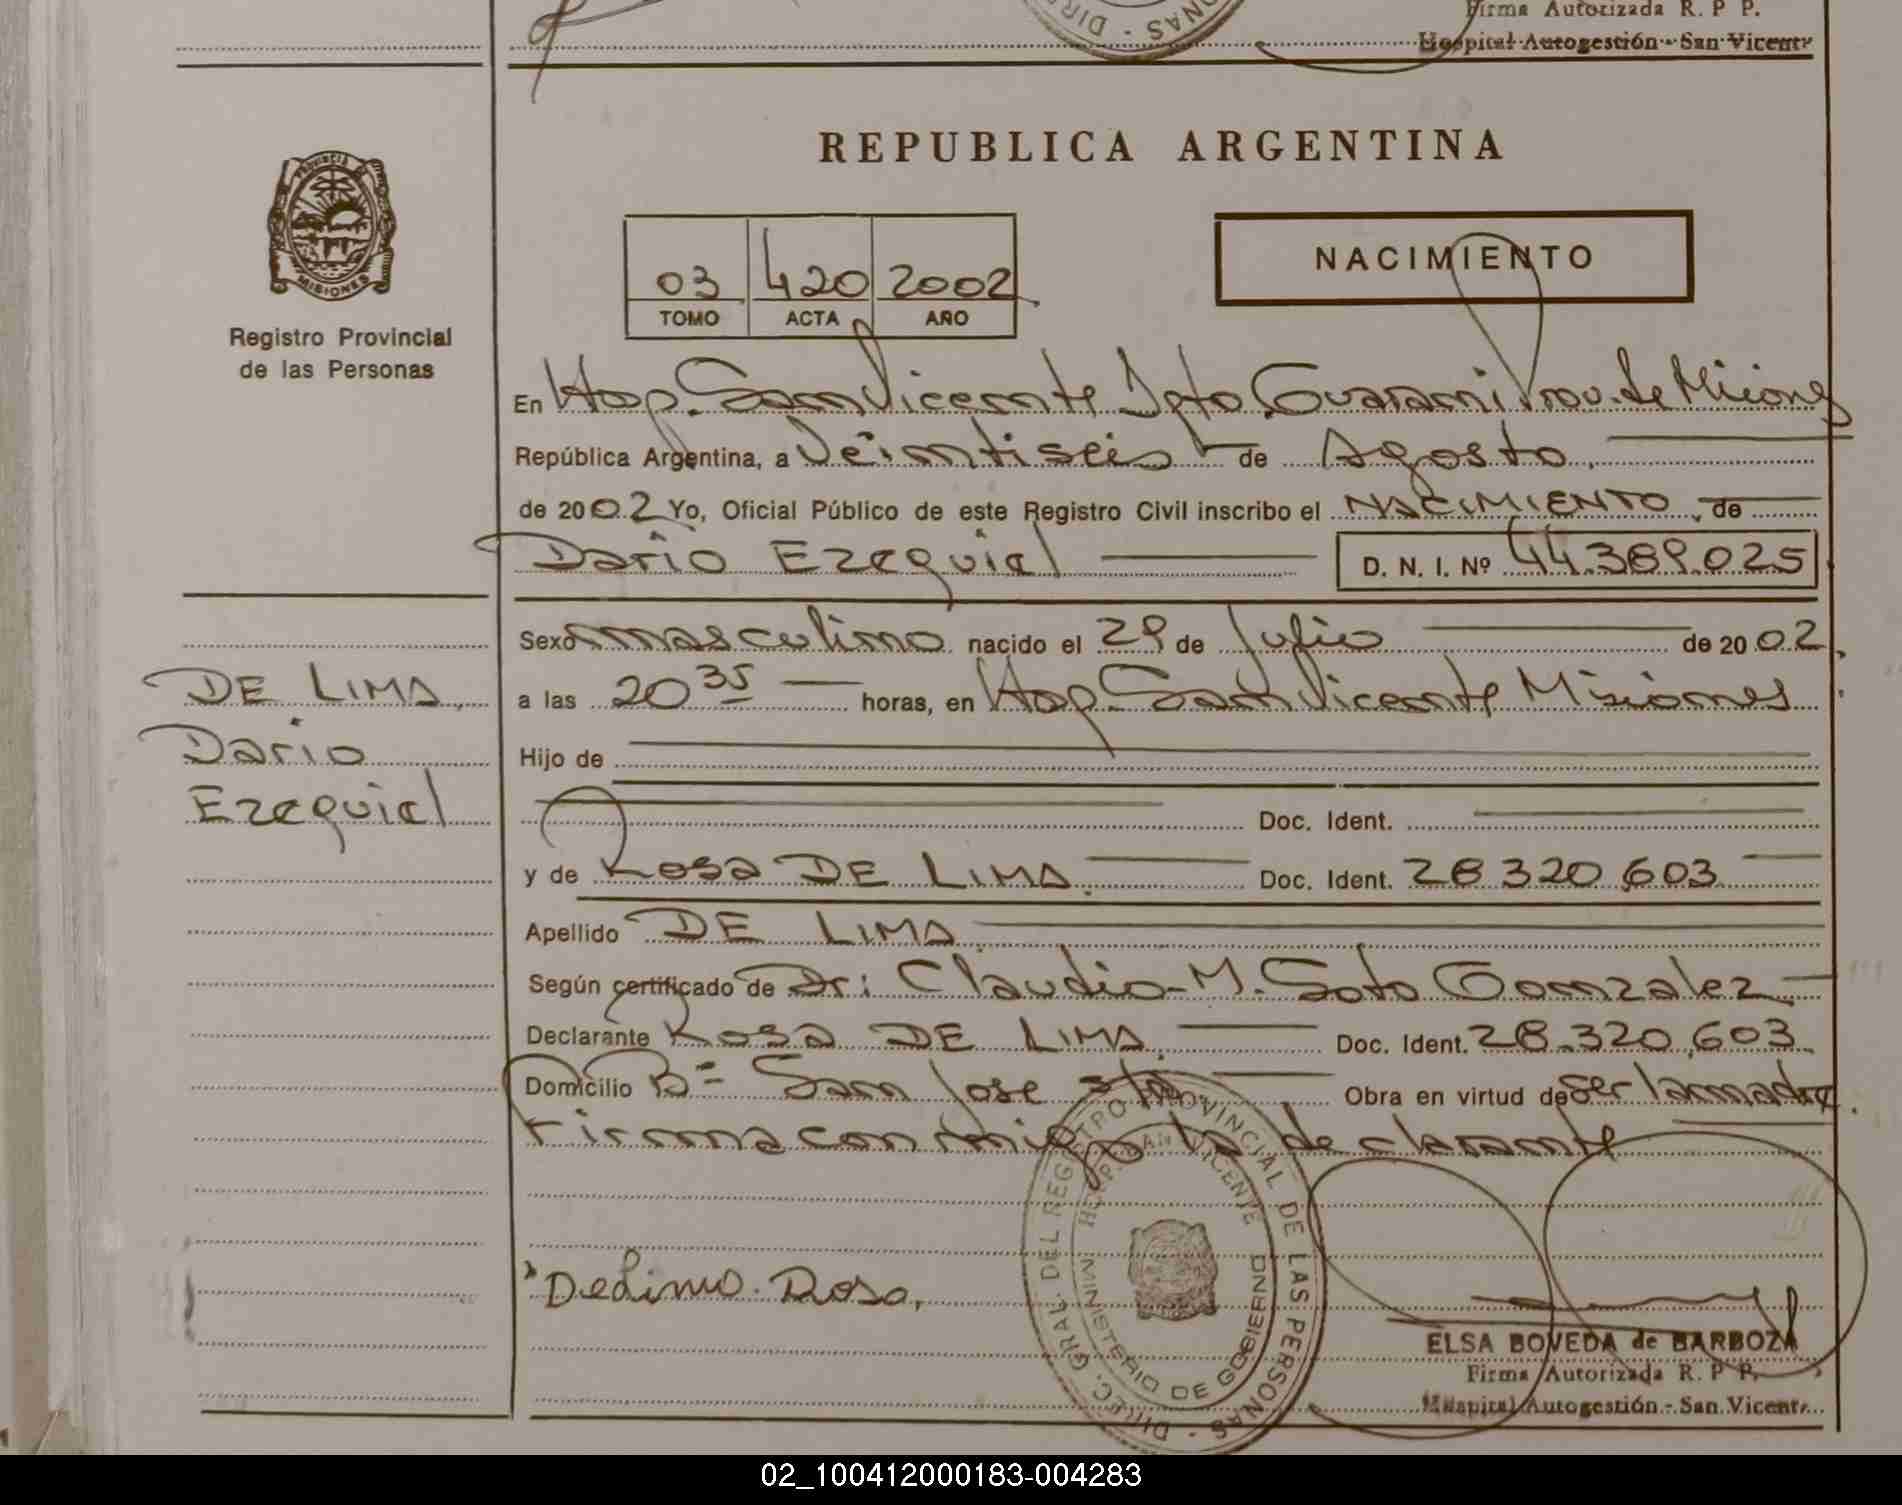 Firma Autorizada R. P P.
Hospital Autogestión - San Vicente
DIRE
ONAS
REPUBLICA ARGENTINA
PROVINCIA
MISIONES
Registro Provincial
de las Personas
03 420 2002
TOMO ACTA AÑO
NACIMIENTO
En Hop. San Vicente Dpto Guarani Prov. de Misiones
República Argentina, a Veintiseis de Agosto
de 2002 Yo, Oficial Público de este Registro Civil inscribo el NACIMIENTO, de
Dario Ezequiel D. N. I. Nº 44.389.025
Sexo masculino nacido el 29 de Julio de 2002.
DE LIMA
Dario
Ezequiel
a las 20 35 horas, en Hop. San Vicente Misiones
Hijo de
Doc. Ident.
y de Rosa DE LIMA. Doc. Ident. 28 320 603
Apellido DE LIMA
Según certificado de Dr: Claudio M. Soto Gonzalez.
Declarante Rosa DE LIMA. Doc. Ident. 28.320.603
Domicilio Bº San Jose Obra en virtud de ser la madre.
Firma conmigo la declarante
Delima. Rosa.
DIREC. GRAL. DEL REGISTRO PROVINCIAL DE LAS PERSONAS
HOSP. SAN VICENTE
MINISTERIO DE GOBIERNO
ELSA BOVEDA de BARBOZA
Firma Autorizada R. P P.
Hospital Autogestión - San Vicente
02_100412000183-004283